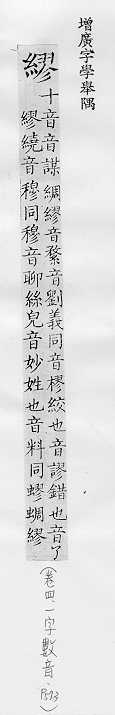 增廣字學舉隅
繆 十音音謀綢繆音鍪音劉義同音樛絞也音謬錯也音了
繆繞音穆同穆音聊絲皃音妙姓也音料同蟉蜩蟉
(卷四、一字數音、P.523)